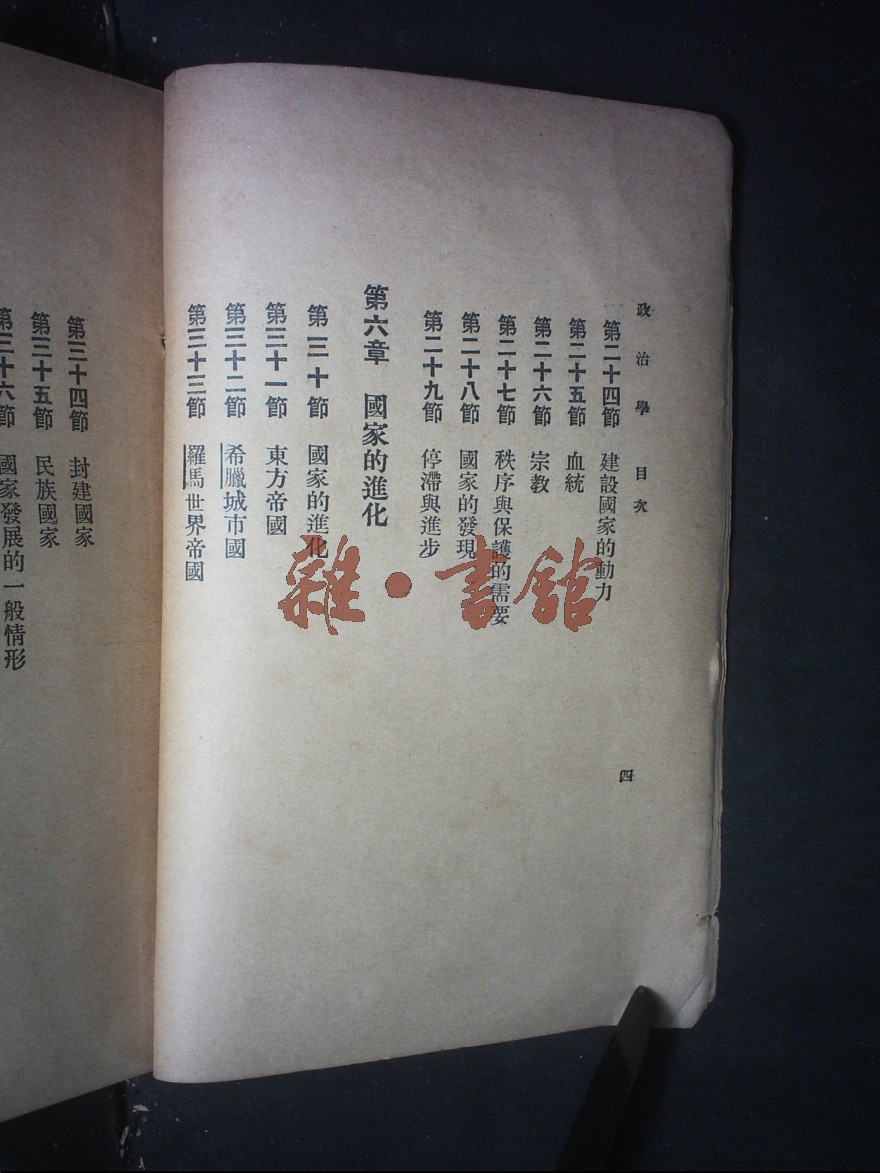 政治學 目次
第二十四節 建設國家的動力
第二十五節 血統
第二十六節 宗教
第二十七節 秩序與保護的需要
第二十八節 國家的發現
第二十九節 停滯與進步
第六章 國家的進化
第三十節 國家的進化
第三十一節 東方帝國
第三十二節 希臘城市國
第三十三節 羅馬世界帝國
四
第三十四節 封建國家
第三十五節 民族國家
第三十六節 國家發展的一般情形
雜·書館